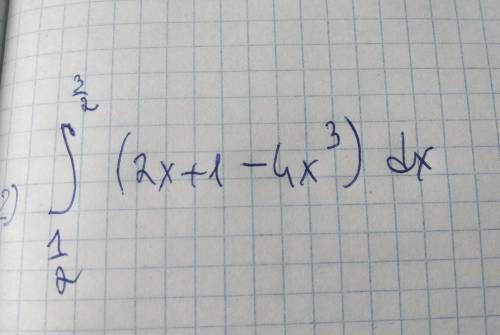 2) ∫_{1/2}^{3/2} (2x+1-4x³) dx